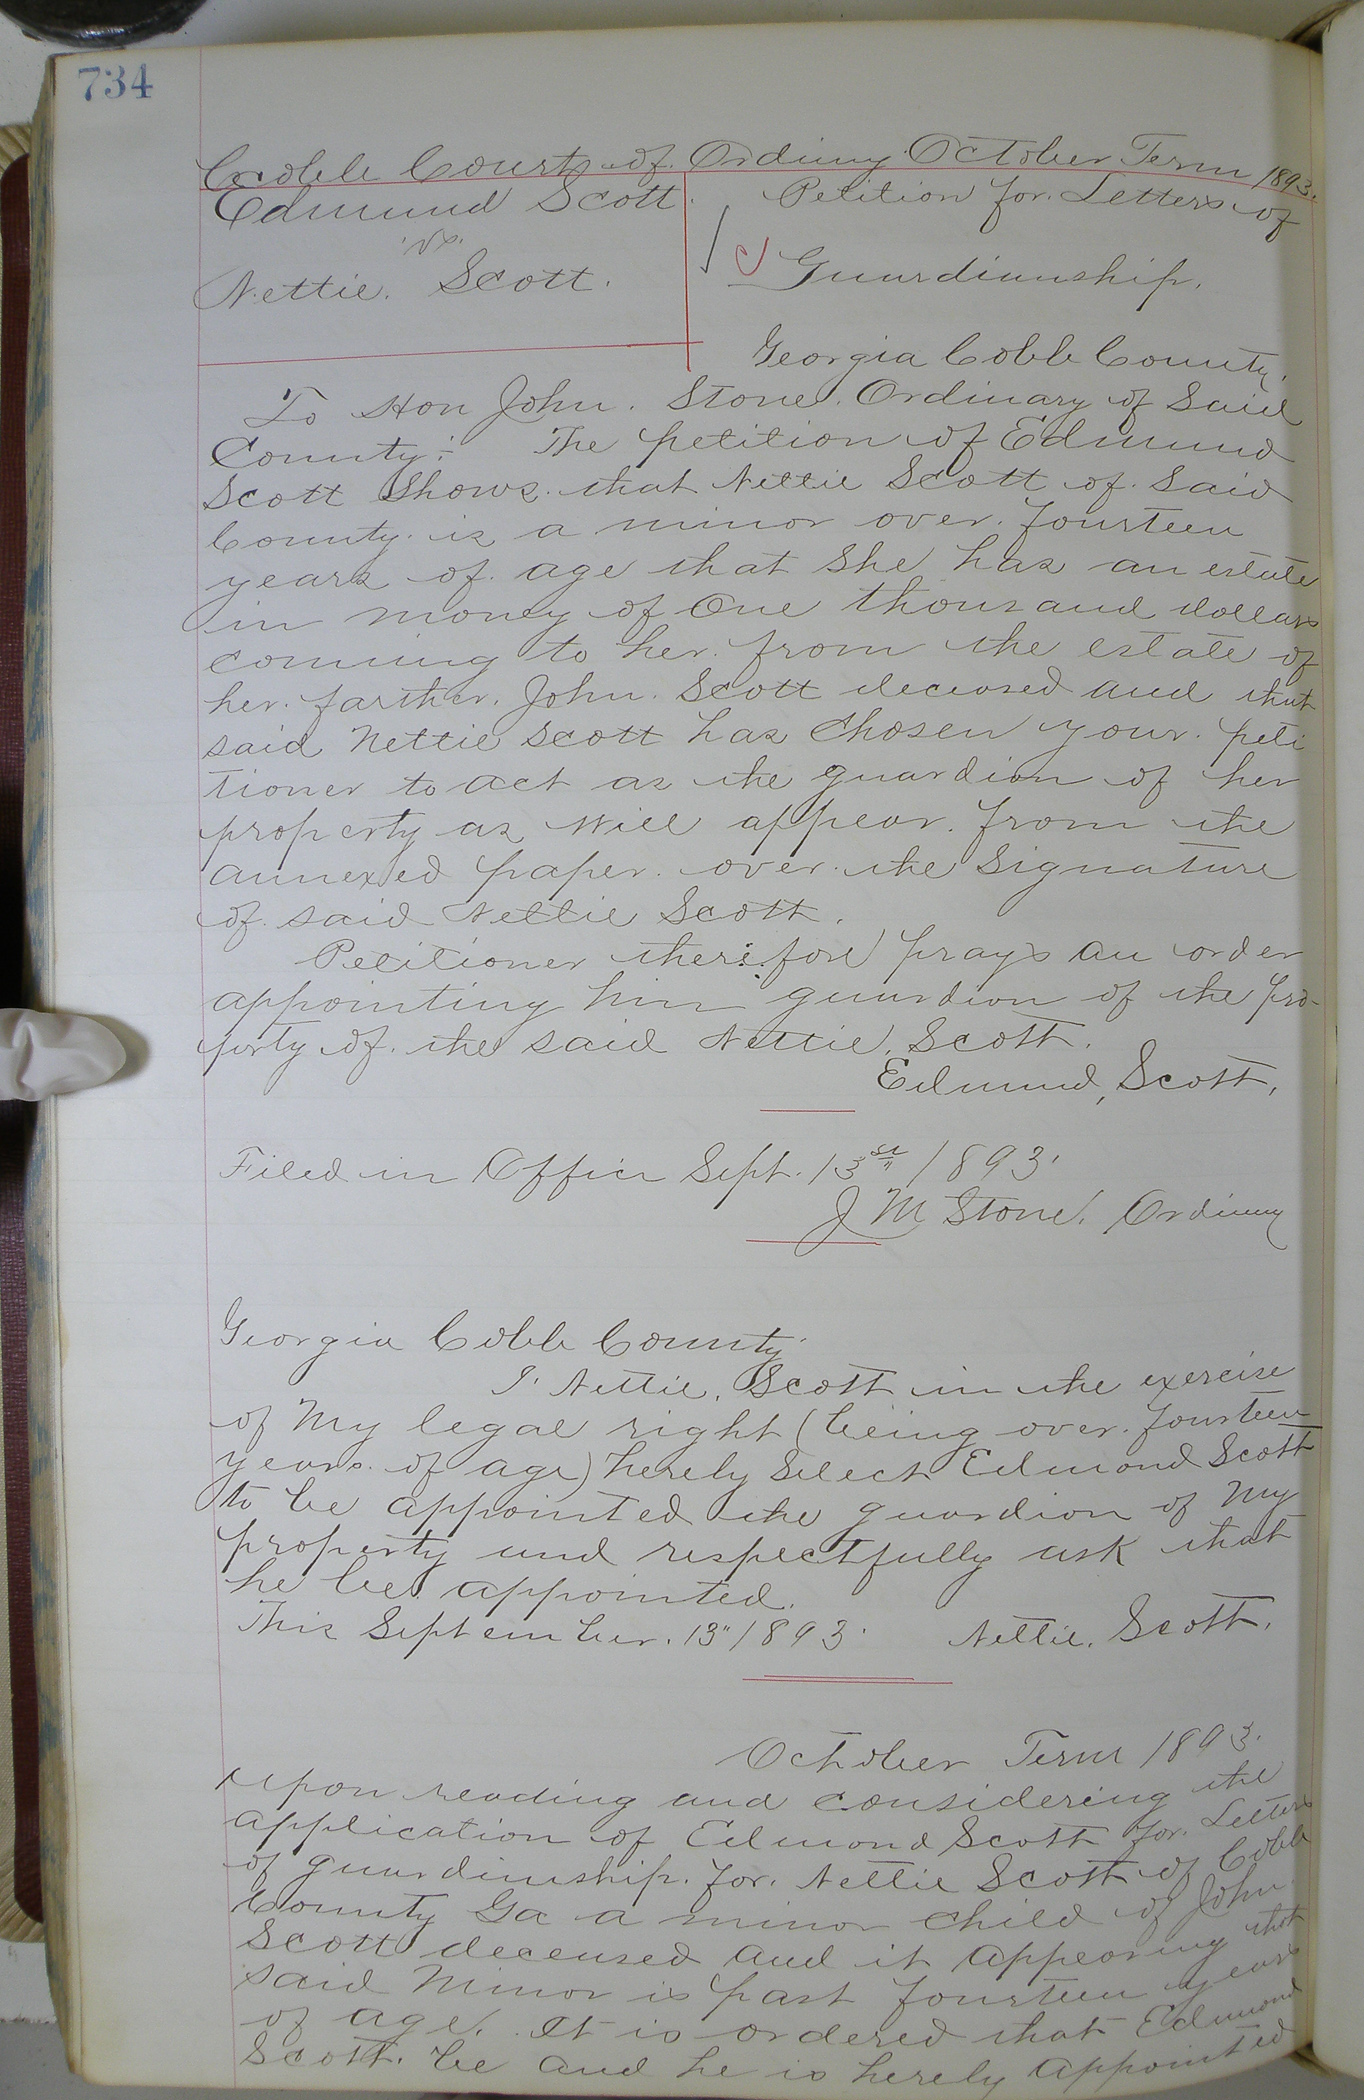 734
Cobb Court of Ordinary October Term 1893.
Edmund Scott. Petition for Letters of
vs.
Nettie. Scott. Guardianship.
Georgia Cobb County.
To Hon John. Stone. Ordinary of Said
County:- The petition of Edmund
Scott Shows. that Nettie Scott of Said
County. is a minor over. fourteen
years of age that She has an estate
in money of One thousand dollars
coming to her. from the estate of
her. farther. John. Scott deceased and that
said Nettie Scott has Chosen your. peti
tioner to act as the guardian of her
property as Will appear. from the
annexed paper. over. the Signature
of said Nettie Scott.
Petitioner therefore prays an order
appointing him guardian of the pro-
perty of. the said Nettie. Scott.
Edmund, Scott,
Filed in Office Sept. 13th 1893.
J M Stone. Ordinary
Georgia Cobb County.
I. Nettie. Scott in the exercise
of My legal right (being over. fourteen
years. of age) hereby Select Edmond Scott
to be appointed the guardian of My
property and respectfully ask that
he be appointed.
This September. 13" 1893. Nettie. Scott.
October Term 1893.
upon reading and considering the
application of Edmond Scott for. Letters
of guardinship. for. Nettie Scott of Cobb
County Ga a minor child of John.
Scott deceased and it appearing that
said Minor is past fourteen years
of age. It is ordered that Edmond
Scott. be and he is hereby appointed